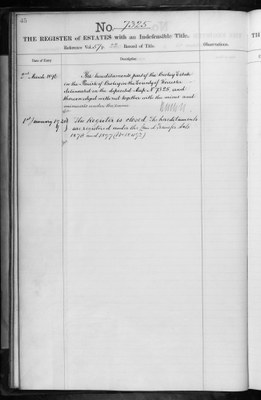 45
No. 7325
THE REGISTER of ESTATES with an Indefeasible Title.
Reference Vol. Record of Title.
Observations.
Date of Entry.
Description
2nd March 1876
The hereditaments part of the Estate
in the Parish of in the County of
delineated on the deposited Map No 7325 and
thereon edged with red together with the mines and
minerals under the same
1st January
The Register is closed. The hereditaments
are registered under the Land Transfer Acts
1875 and 1897